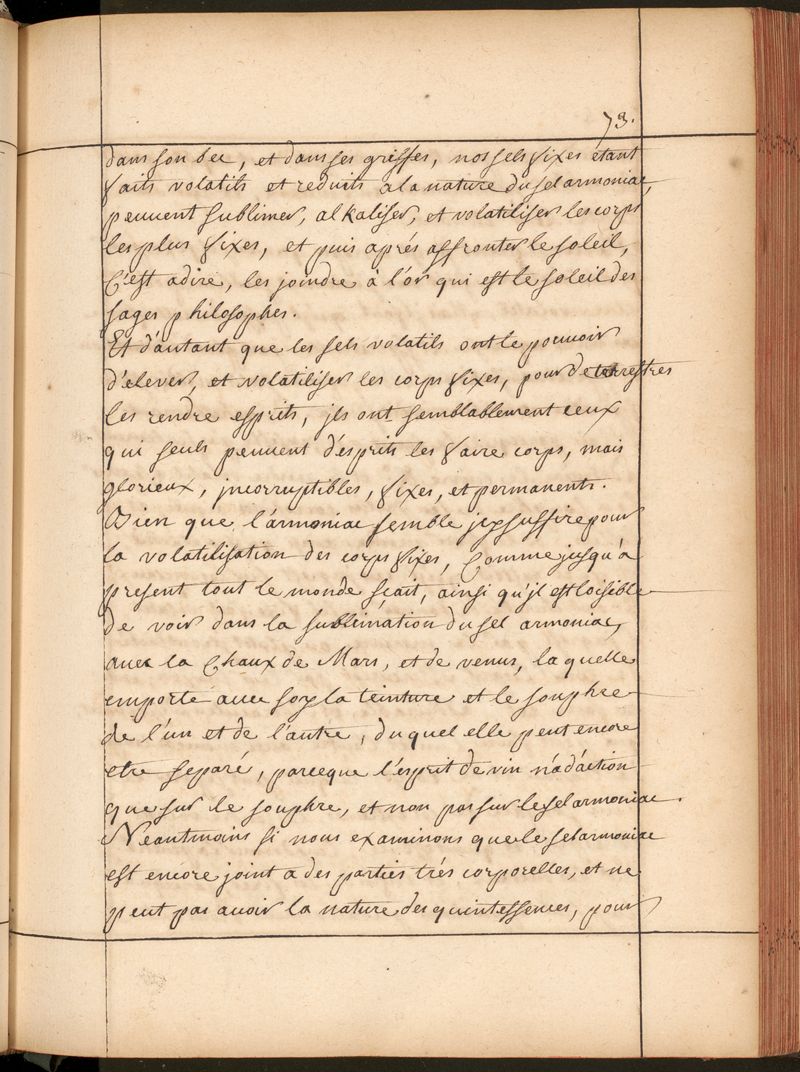 73.
dans son bec, et dans ses griffes, nos sels fixes étant
faits volatils et reduits a la nature du sel armoniac,
peuuent sublimer, alkaliser, et volatiliser les corps
les plus fixes, et puis aprés affronter le soleil,
C'est adire, les joindre à l'or qui est le soleil des
sages philosophes.
Et d'autant que les sels volatils ont le pouuoir
d'elever, et volatiliser les corps fixes, pour de terrestres
les rendre esprits, jls ont semblablement ceux
qui seuls peuuent d'esprits les faire corps, mais
glorieux, jncorruptibles, fixes, et permanents.
Bien que l'armoniac semble jcy suffire pour
la volatilisation des corps fixes, Comme jusqu'a
present tout le monde scait, ainsi qu'jl est loisible
de voir dans la sublimation du sel armoniac,
auec la Chaux de Mars, et de venus, la quelle
emporte auec soy la teinture et le souphre
de l'un et de l'autre, du quel elle peut encore
etre separé, parceque l'esprit de vin n'a d'action
que sur le souphre, et non pas sur le sel armoniac.
Neantmoins si nous examinons que le sel armoniac
est encore joint a des parties trés corporelles, et ne
peut pas auoir la nature des quintessences, pour